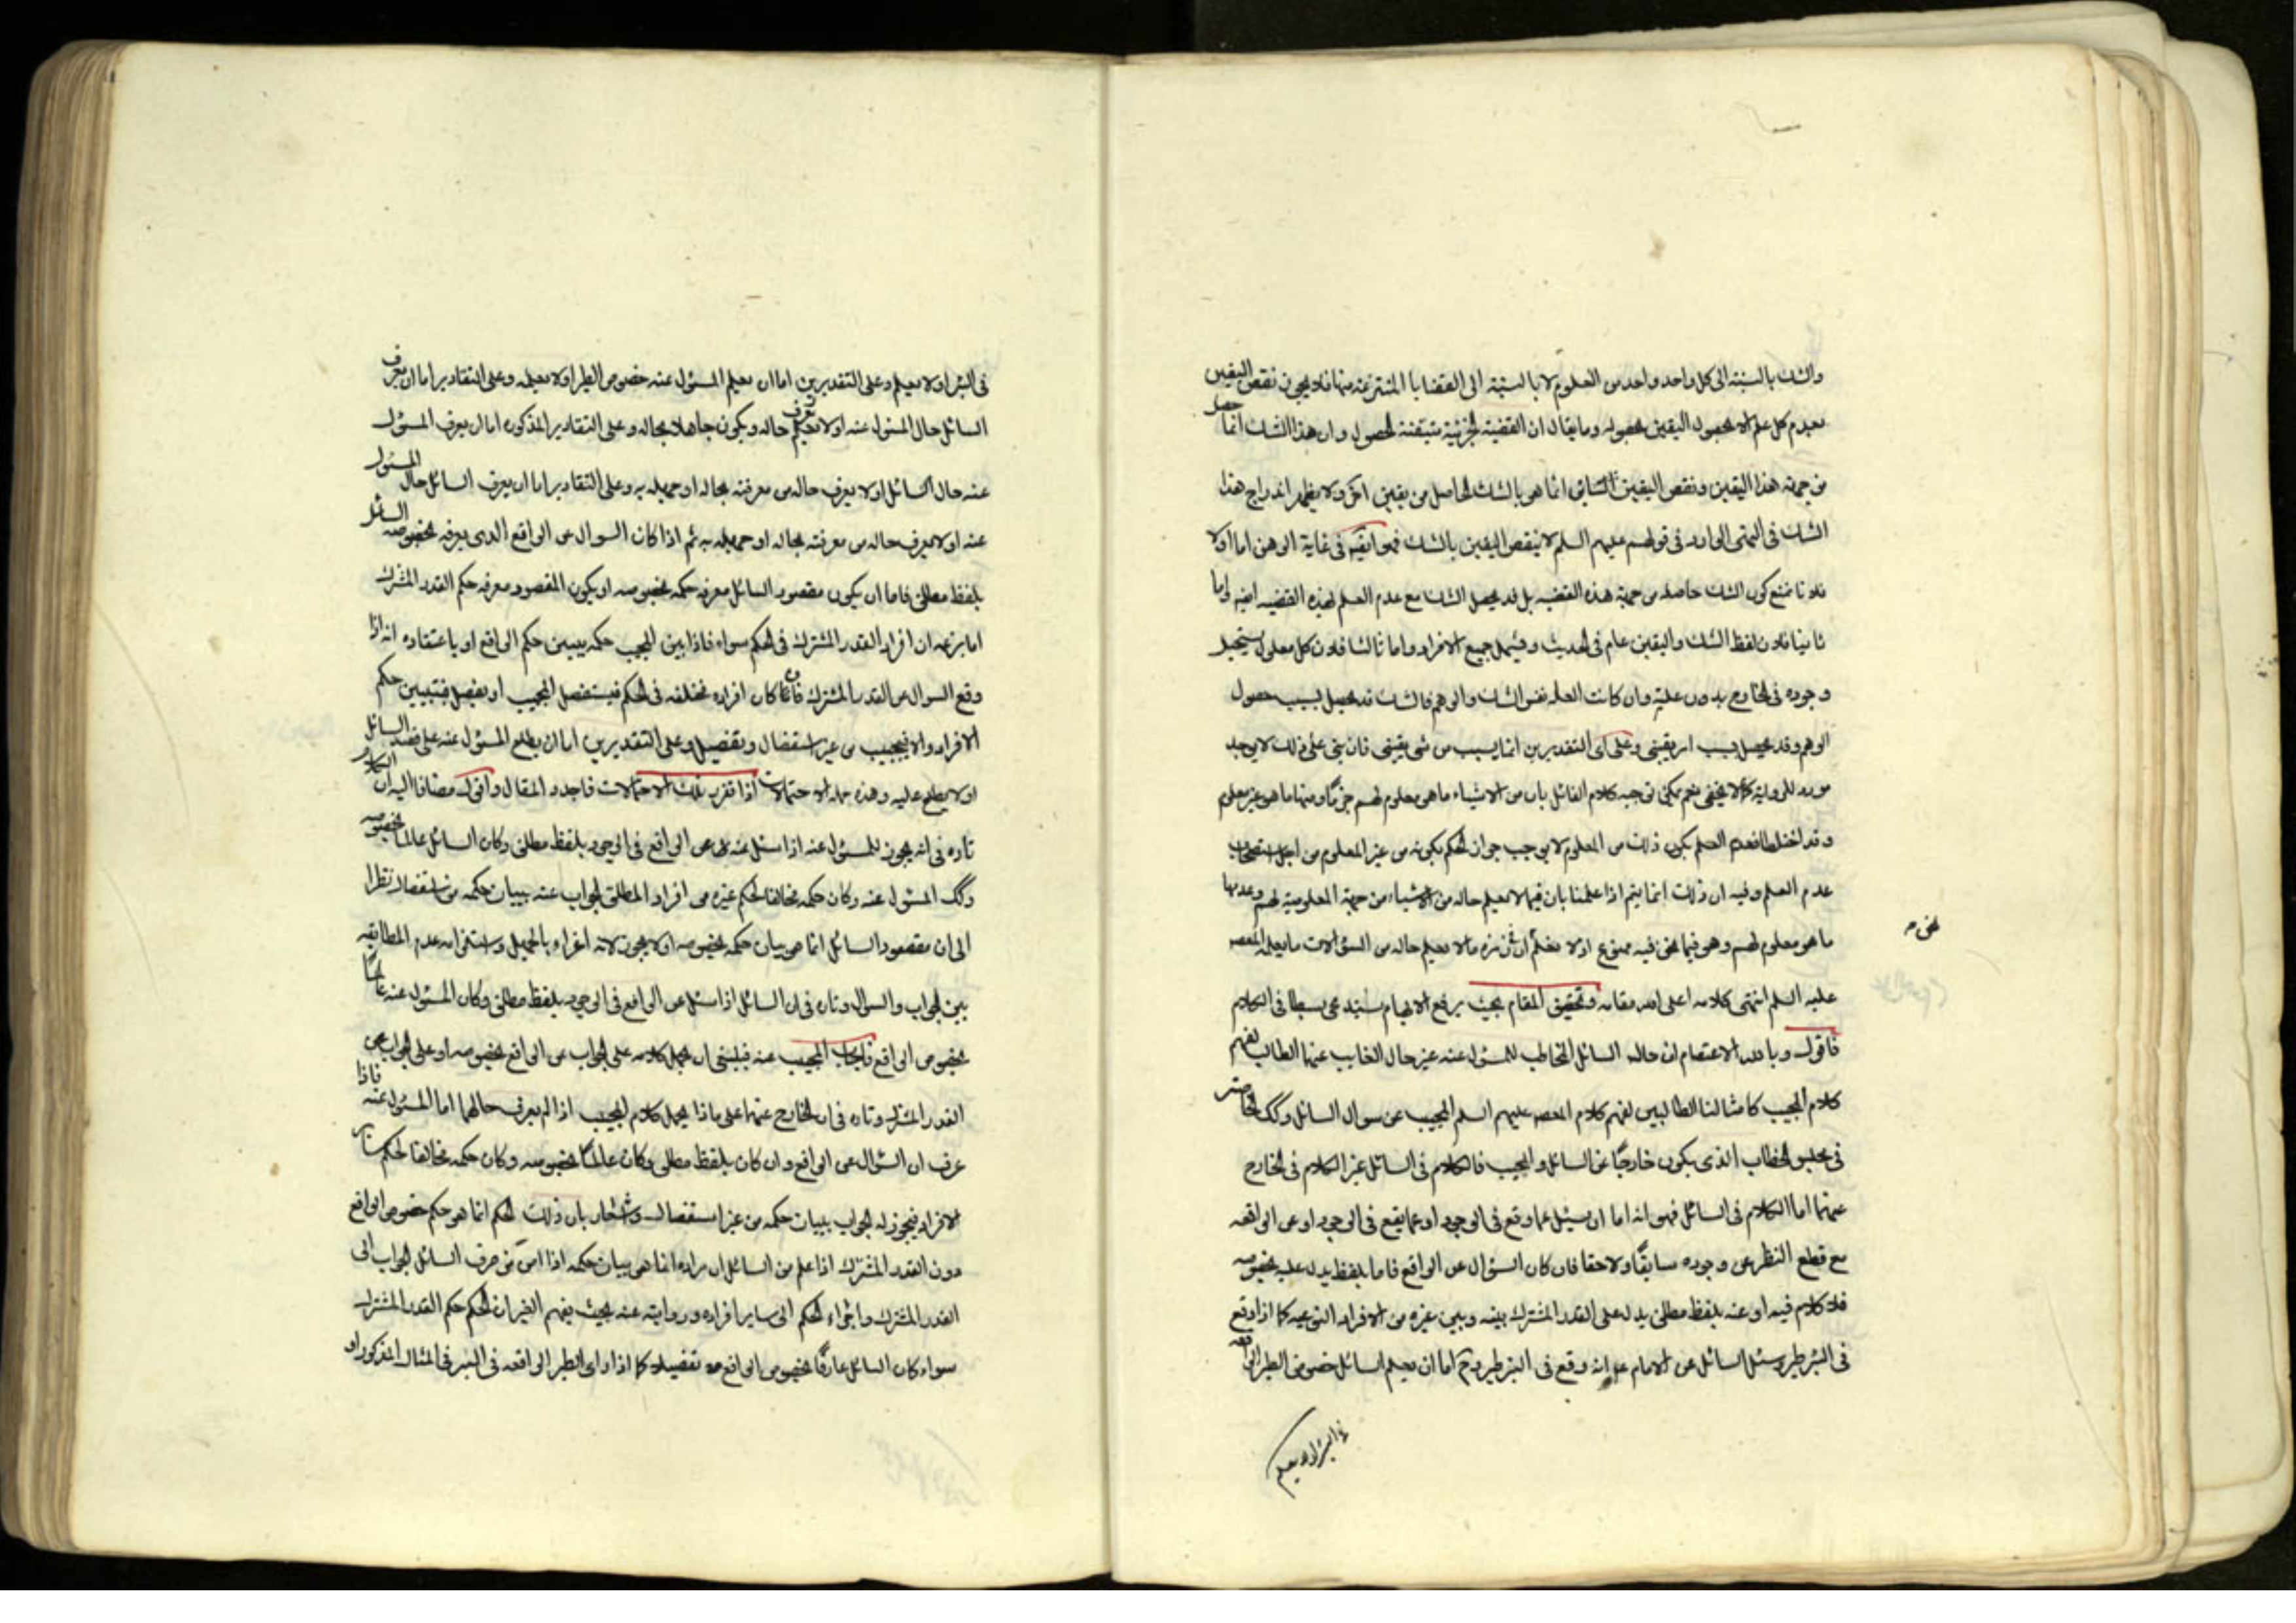 والشك بالنسبة الى كل واحد واحد من العلوم لا بالنسبة الى القضايا المنتزعة منها فلا يجوز نقض اليقين
بعدم كل علم الا بحصول اليقين بحصوله وما يقال ان القضية الجزئية متيقنة الحصول وان هذا الشك انما حصل
من جهة هذا اليقين ونقض اليقين السابق انما هو بالشك الحاصل من يقين اخر ولا يظهر اندراج هذا
الشك في النهي الوارد في قولهم عليهم السلم لا ينقض اليقين بالشك فهو ايضا في غاية الوهن اما اولا
فلانا نمنع كون الشك حاصلا من جهة هذه القضية بل قد يحصل الشك مع عدم العلم بهذه القضية ايضا واما
ثانيا فلان لفظ الشك واليقين عام في الحديث وفيشمل جميع الافراد واما ثالثا فلان كل معلول يستحيل
وجوده في الخارج بدون علته وان كانت العلة نفس الشك والوهم فالشك قد يحصل بسبب حصول
الوهم وقد يحصل بسبب امر يقيني وعلى اي التقديرين انما يسبب من شي يقيني فان بنى على ذلك لا يوجد
مورد للرواية كما لا يخفى نعم يمكن توجيه كلام القائل بان من الاشياء ما هو معلوم لهم جزما ومنها ما هو غير معلوم
وقد اختلطا فعدم العلم بكون ذلك من المعلوم لا يوجب جواز الحكم بكونه من غير المعلوم من اجل استصحاب
عدم العلم وفيه ان ذلك انما يتم اذا علمنا بان فيما لا يعلم حاله من الاشياء من جهة المعلومية لهم وعدمها
ما هو معلوم لهم وهو فيما نحن فيه ممنوع اذ لا نعلم ان في زمرة ما لا يعلم حاله من السؤالات ما يعلمه المعصوم
نحن م
عليه السلم انتهى كلامه اعلى الله مقامه وتحقيق المقام بحيث يرفع الابهام يستدعي بسطا في الكلام
فاقول وبالله الاعتصام ان حالة السائل المخاطب للمسؤل عنه غير حال الغايب عنها الطالب لفهم
كلام المجيب كامثالنا الطالبين لفهم كلام المعصوم عليهم السلم المجيب عن سوال السائل وكك الحاضر
في مجلس الخطاب الذي يكون خارجا عن السائل والمجيب فالكلام في السائل غير الكلام في الخارج
عنهما اما الكلام في السائل فهو انه اما ان يسئل عما وقع في الوجود او عما يقع في الوجود او عن الواقعة
مع قطع النظر عن وجوده سابقا ولاحقا فان كان السؤال عن الواقع فاما بلفظ يدل عليه بخصوصه
فلا كلام فيه او عنه بلفظ مطلق يدل على القدر المشترك بينه وبين غيره من الافراد النوعية كما اذا وقع
في البئر طير وسئل السائل عن الامام ع انه وقع في البئر طير وح اما ان يعلم السائل خصوص الطير الواقعة
في البئر او لا يعلم
في البئر او لا يعلم وعلى التقديرين اما ان يعلم المسئول عنه خصوص الطير او لا يعلمه وعلى التقادير اما ان يعرف
السائل حال المسئول عنه او لا يعرف حاله ويكون جاهلا بحاله وعلى التقادير المذكورة اما ان يعرف المسئول
عنه حال السائل او لا يعرف حاله من معرفته بحاله او جهله به وعلى التقادير اما ان يعرف السائل حال المسئول
عنه او لا يعرف حاله من معرفته بحاله او جهله به ثم اذا كان السوال عن الواقع الذي يعرفه بخصوصه السائل
بلفظ مطلق فاما ان يكون مقصود السائل معرفة حكمه بخصوصه او يكون المقصود معرفة حكم القدر المشترك
اما بزعمه ان افراد القدر المشترك في الحكم سواء فاذا بين المجيب حكمه يبين حكم الواقع او باعتقاده انه اذا
وقع السوال عن القدر المشترك فان كان افراده مختلفة في الحكم فيستفصل المجيب او يفصل فيتبين حكم
الافراد والا فيجيب من غير استفصال وتفصيل وعلى التقديرين اما ان يطلع المسئول عنه على قصد السائل
او لا يطلع عليه وهذه جملة الاحتمالات اذا تقرر تلك الاحتمالات فاجدد المقال واقول مضافا اليه ان الكلام
تارة في انه يجوز للمسئول عنه اذا سئل عنه عن الواقع في الوجود بلفظ مطلق وكان السائل عالما بخصوصه
وكك المسئول عنه وكان حكمه مخالفا لحكم غيره من افراد المطلق الجواب عنه ببيان حكمه من استفصال نظرا
الى ان مقصود السائل انما هو بيان حكمه بخصوصه او لا يجوز لانه اغراء بالجهل واستلزامه عدم المطابقة
بين الجواب والسوال وتارة في ان السائل اذا سئل عن الواقع في الوجود بلفظ مطلق وكان المسئول عنه عالما
بخصوص الواقع فاجاب المجيب عنه فينبغي ان يحمل كلامه على الجواب عن الواقع بخصوصه او على الجواب عن
القدر المشترك وتارة في ان الخارج عنهما على ماذا يحمل كلام المجيب اذا لم يعرف حالهما اما المسئول عنه فاذا
عرف ان السؤال عن الواقع وان كان بلفظ مطلق وكان عالما بخصوصه وكان حكمه مخالفا لحكم سائر
الافراد فيجوز له الجواب ببيان حكمه من غير استفصال واشعار بان ذلك الحكم انما هو حكم خصوص الواقع
دون القدر المشترك اذا علم من السائل ان مراده انما هو بيان حكمه اذا امن من صرف السائل الجواب الى
القدر المشترك واجراء الحكم الى ساير افراده وروايته عنه بحيث يفهم الغير ان الحكم حكم القدر المشترك
سواء كان السائل عارفا بخصوص الواقع تفصيلا كما اذا راى الطير الواقعة في البئر في المثال المذكور او